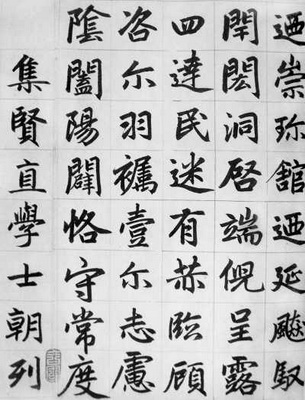 迺崇珎舘迺延飈馭
閈閎洞啓端倪呈露
四達民迷有赫臨顧
咨尓羽襦壹尓志慮
隂闔陽闢恪守常度
集賢直學士朝列